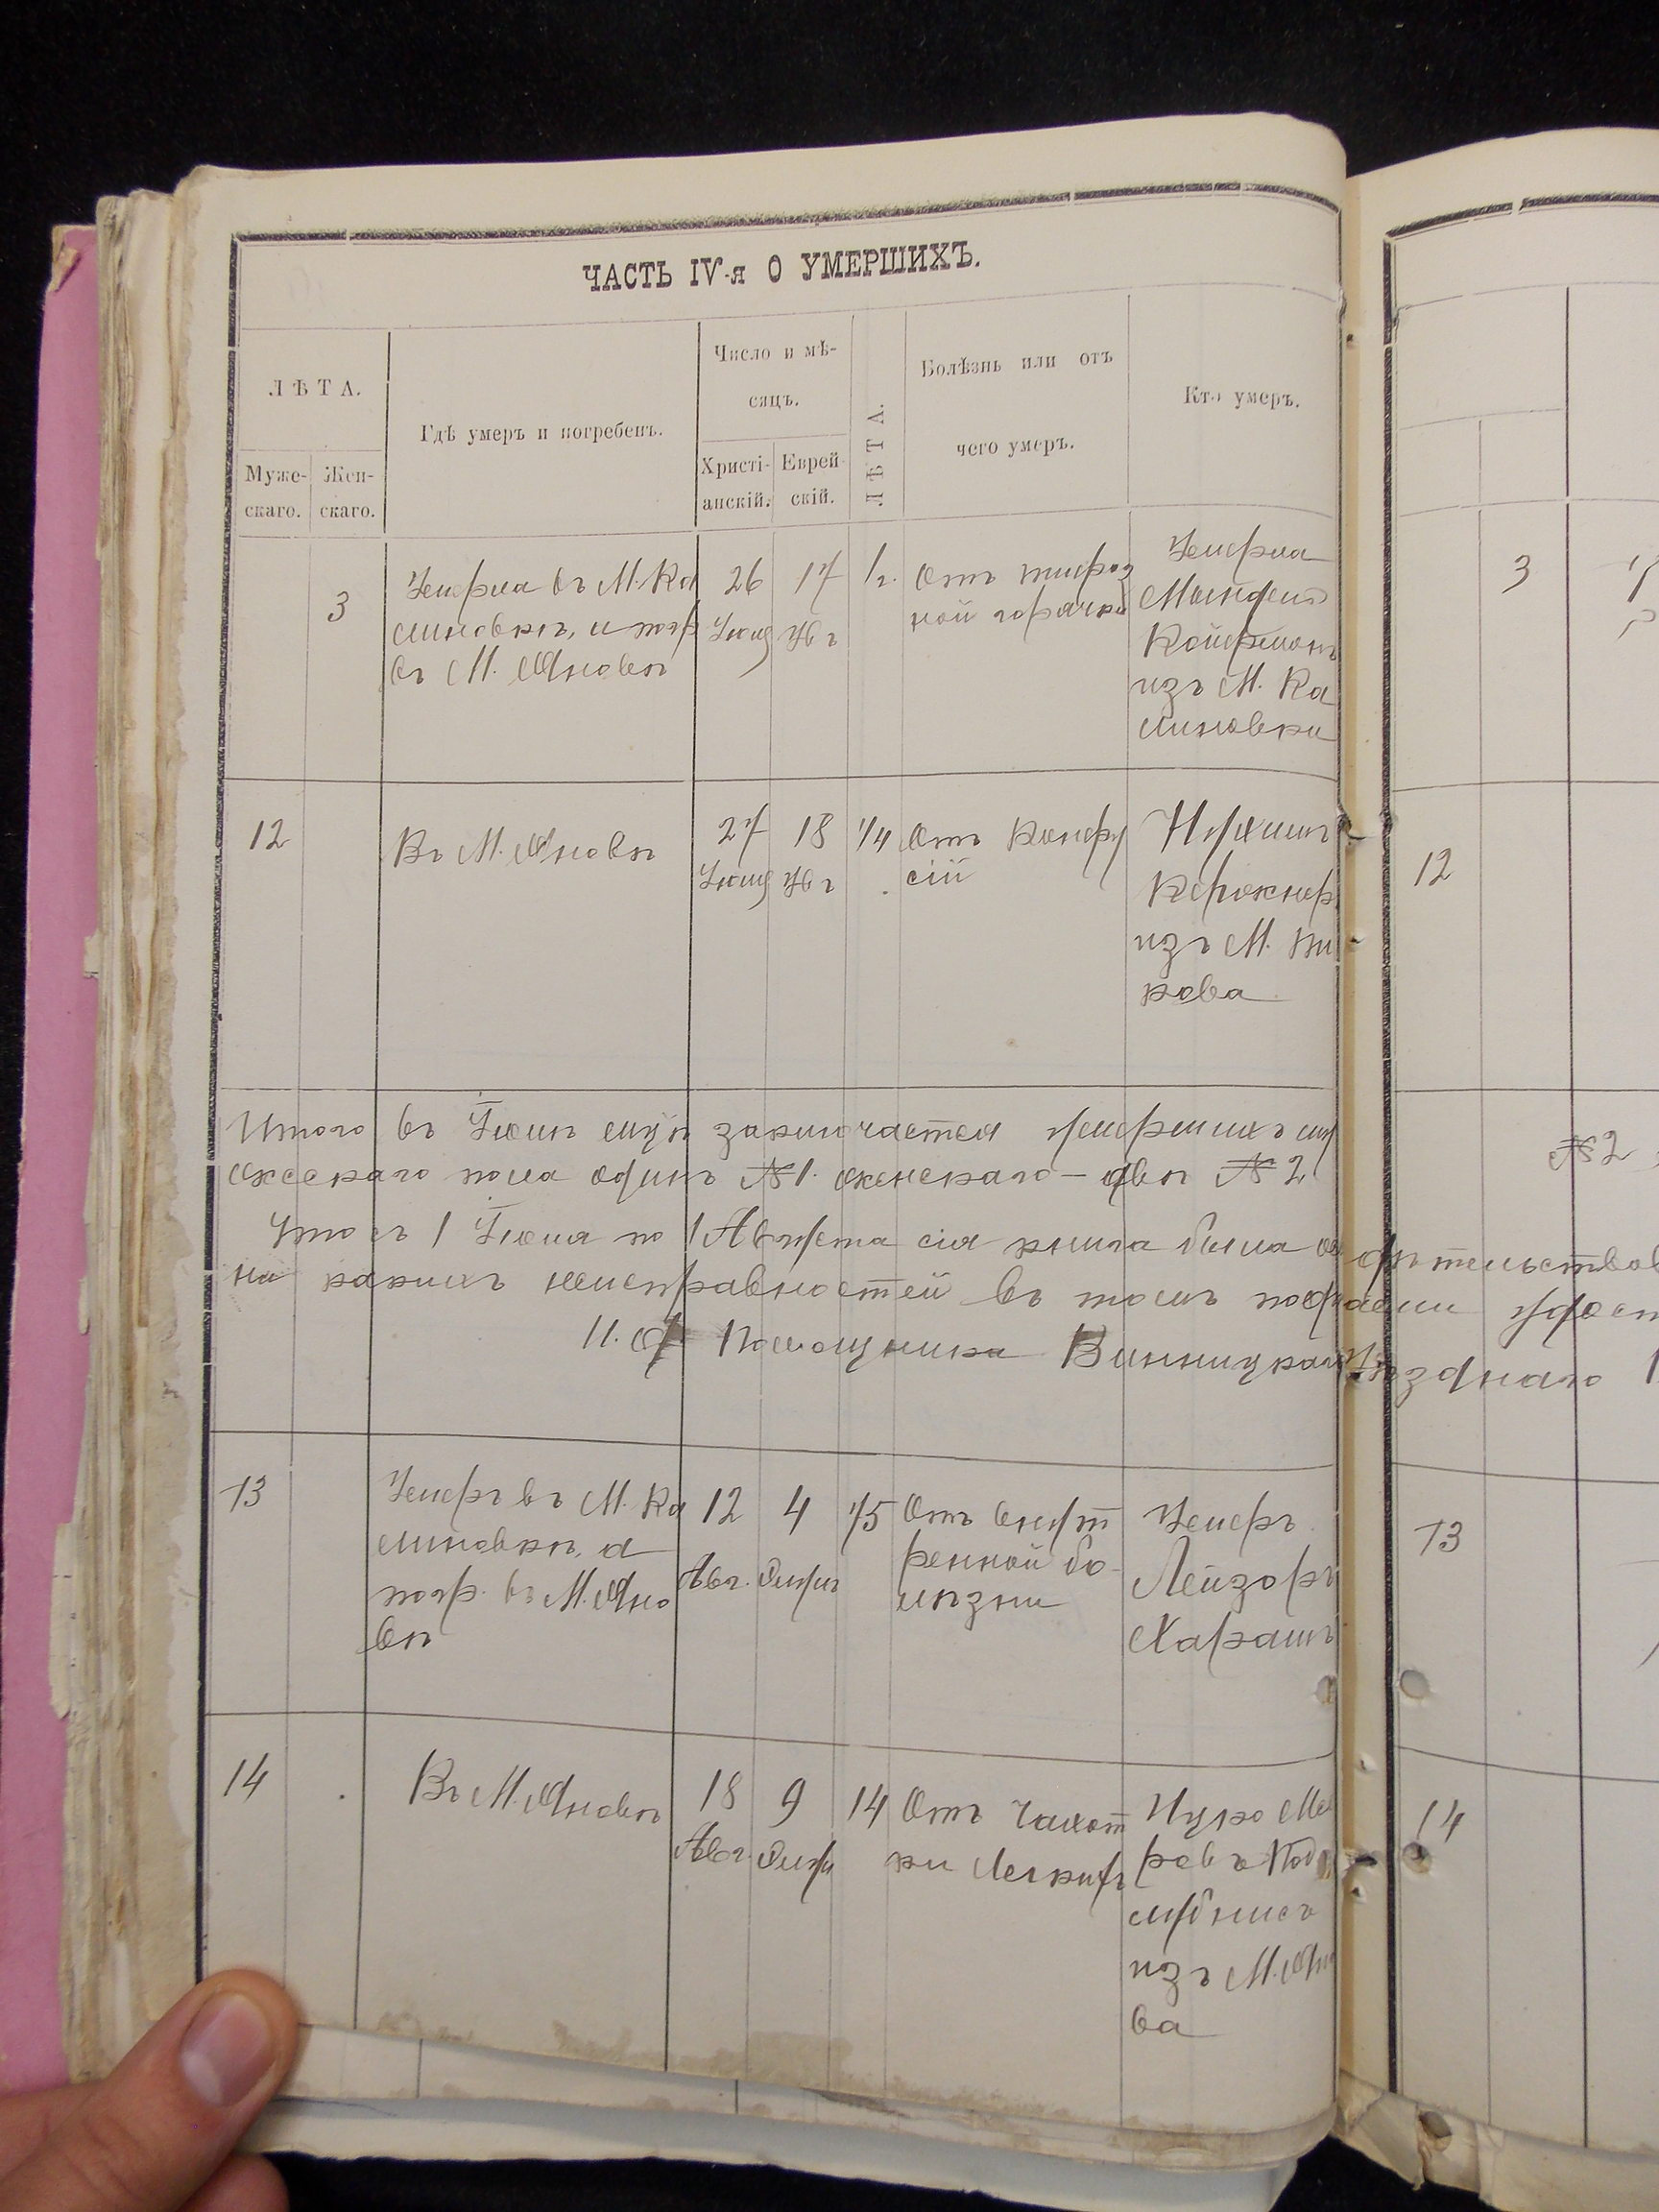 ЧАСТЬ IV-я О УМЕРШИХЪ.
ЛѢТА.
Муже-
скаго.
Жен-
скаго.
Гдѣ умеръ и погребенъ.
Число и мѣ-
сяцъ.
Христі-
анскій.
Еврей-
скій.
ЛѢТА.
Болѣзнь или отъ
чего умеръ.
Кто умеръ.
3
Умерла въ М. Ка
линовкѣ, и погр
въ М. Яновѣ
26
17
1/2.
Отъ тифоз
ной горячки
Умерла
Койфманъ
изъ М. Ка
линовки
3
12
Въ М. Яновѣ
27
18
1/4
Отъ Конфу
сій
изъ М. Пи
кова
12
Итого въ Іюлѣ заключается умершихъ му
жескаго пола одинъ №1. женскаго – двѣ №2
№2
Что съ 1 Іюля по 1 Августа сія книга была
ни какихъ неисправностей въ томъ
И. д. Помощника Винницкаго Уѣзднаго
13
Умеръ въ М. Ка
линовкѣ, а
погр. въ М. Яно
вѣ
12
Авг.
4
75
Отъ внут
ренной бо-
лѣзни
Умеръ
Лейзоръ
Харашъ
13
14
Въ М. Яновѣ
18
Авг.
9
14
Отъ Чахот
ки Легкихъ
изъ М. Яно
ва
14